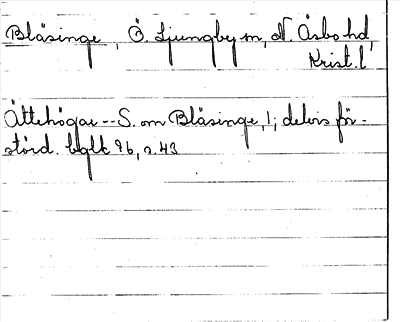 Bläsinge, Ö. Ljungby sn, N. Åsbo hd,
Krist. l
Ättehögar -- S. om Bläsinge, 1; delvis för-
störd. bglk 96, s. 43